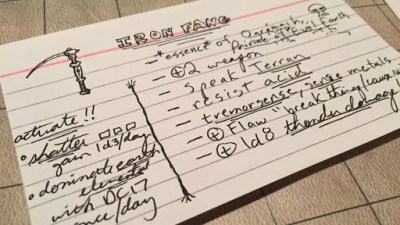 IRON FANG
- *essence of Ogrémoch,
Prince of Evil Earth
- +2 weapon
- speak Terran
- resist acid
- tremorsense, sense metals
- + Flaw "break things/cause
- + 1d8 thunder damage
activate!!
• shatter
gain 1d3/day
• dominate earth
elemental
with DC17
once/day